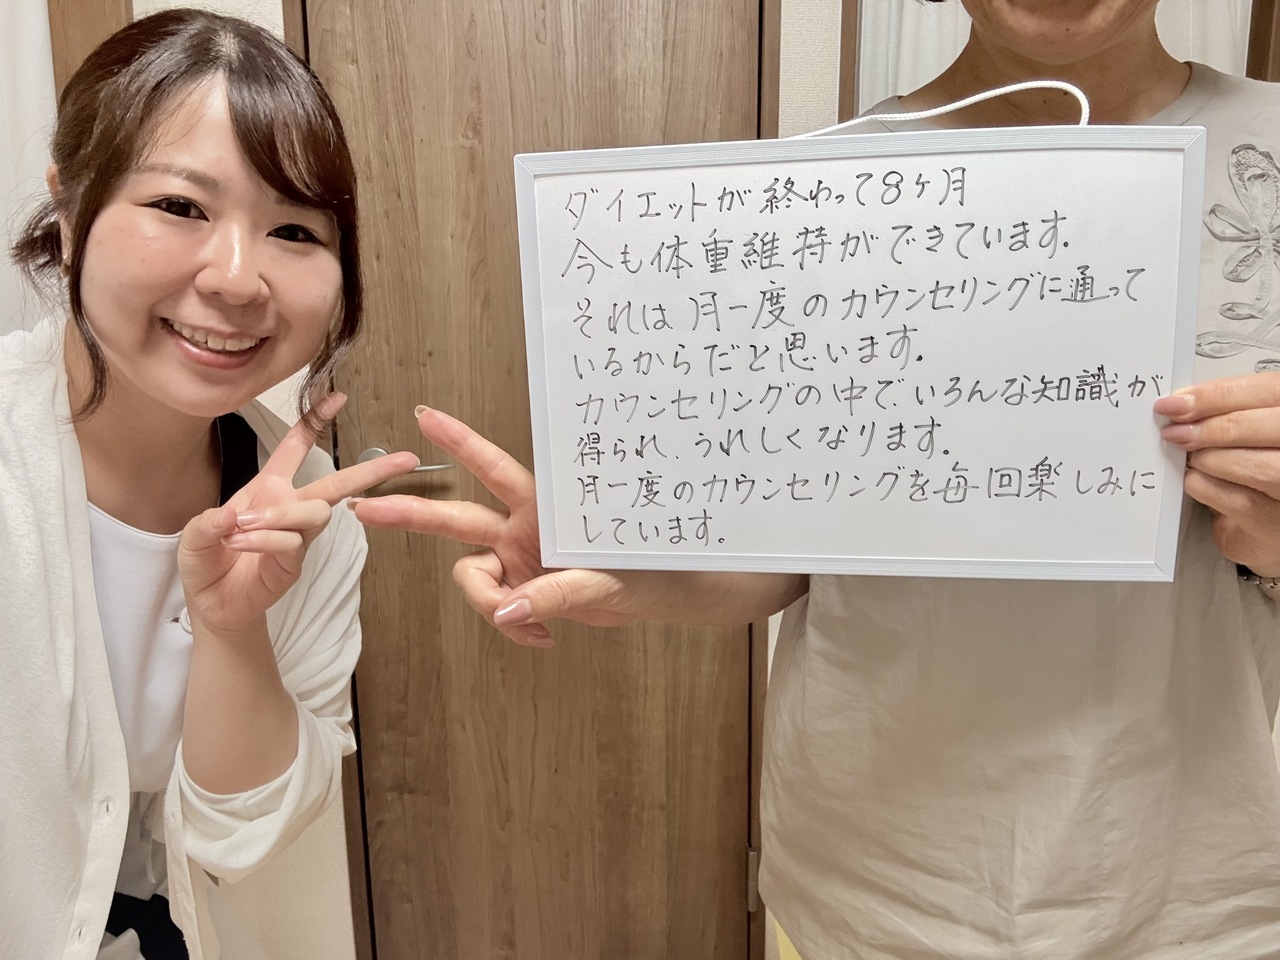 ダイエットが終わって8ヶ月
今も体重維持ができています.
それは月一度のカウンセリングに通って
いるからだと思います.
カウンセリングの中で、いろんな知識が
得られ、うれしくなります。
月一度のカウンセリングを毎回楽しみに
しています。